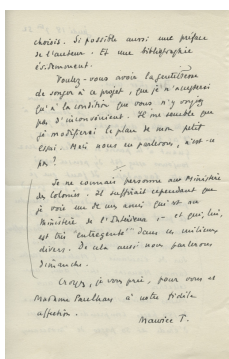 choisit. Si possible aussi une préface
de l'auteur. Et une bibliographie
évidemment.
Voulez-vous avoir la gentillesse
de songer à ce projet, que je n'accepterai
qu'à la condition que vous n'y voyiez
pas d'inconvénient. Il me semble que
je modifierai le plan de mon petit
essai. Mais nous en parlerons, n'est-ce
pas ?
Je ne connais personne au Ministère
des Colonies. Il suffirait cependant que
je voie un de mes amis qui est au
Ministère de l'Intérieur, et qui, lui,
est très "entregenté" dans ces milieux
divers. De cela aussi nous parlerons
dimanche.
Croyez, je vous prie, pour vous et
Madame Paulhan à notre fidèle
affection.
Maurice T.